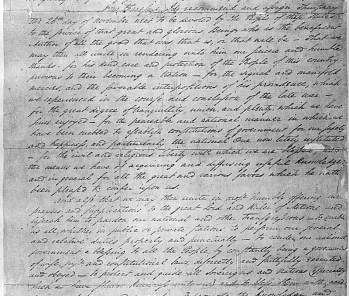 Now therefore I do recommend and assign Thursday
the 26th day of November next to be devoted by the People of these States
to the service of that great and glorious Being, who is the beneficent
Author of all the good that was, that is, or that will be – That we
may then all unite in rendering unto him our sincere and humble
thanks – for his kind care and protection of the People of this country
previous to their becoming a Nation – for the signal and manifold
mercies, and the favorable interpositions of his providence, which
we experienced in the course and conclusion of the late war –
for the great degree of tranquillity, union, and plenty, which we have
since enjoyed – for the peaceable and rational manner in which we
have been enabled to establish constitutions of government for our safety
and happiness, and particularly the national One now lately instituted
– for the civil and religious liberty with which we are blessed, and
the means we have of acquiring and diffusing useful knowledge
and in general for all the great and various favors which he hath
been pleased to confer upon us.
And also that we may then unite in most humbly offering our
prayers and supplications to the great Lord and Ruler of Nations, and
beseech him to pardon our national and other transgressions – to enable
us all, whether in public or private stations, to perform our several
and relative duties properly and punctually – to render our national
government a blessing to all the People, by constantly being a government
of wise, just and constitutional laws, discreetly and faithfully executed
and obeyed – to protect and guide all Sovereigns and Nations (especially
such as have shown kindness unto us) and to bless them with good